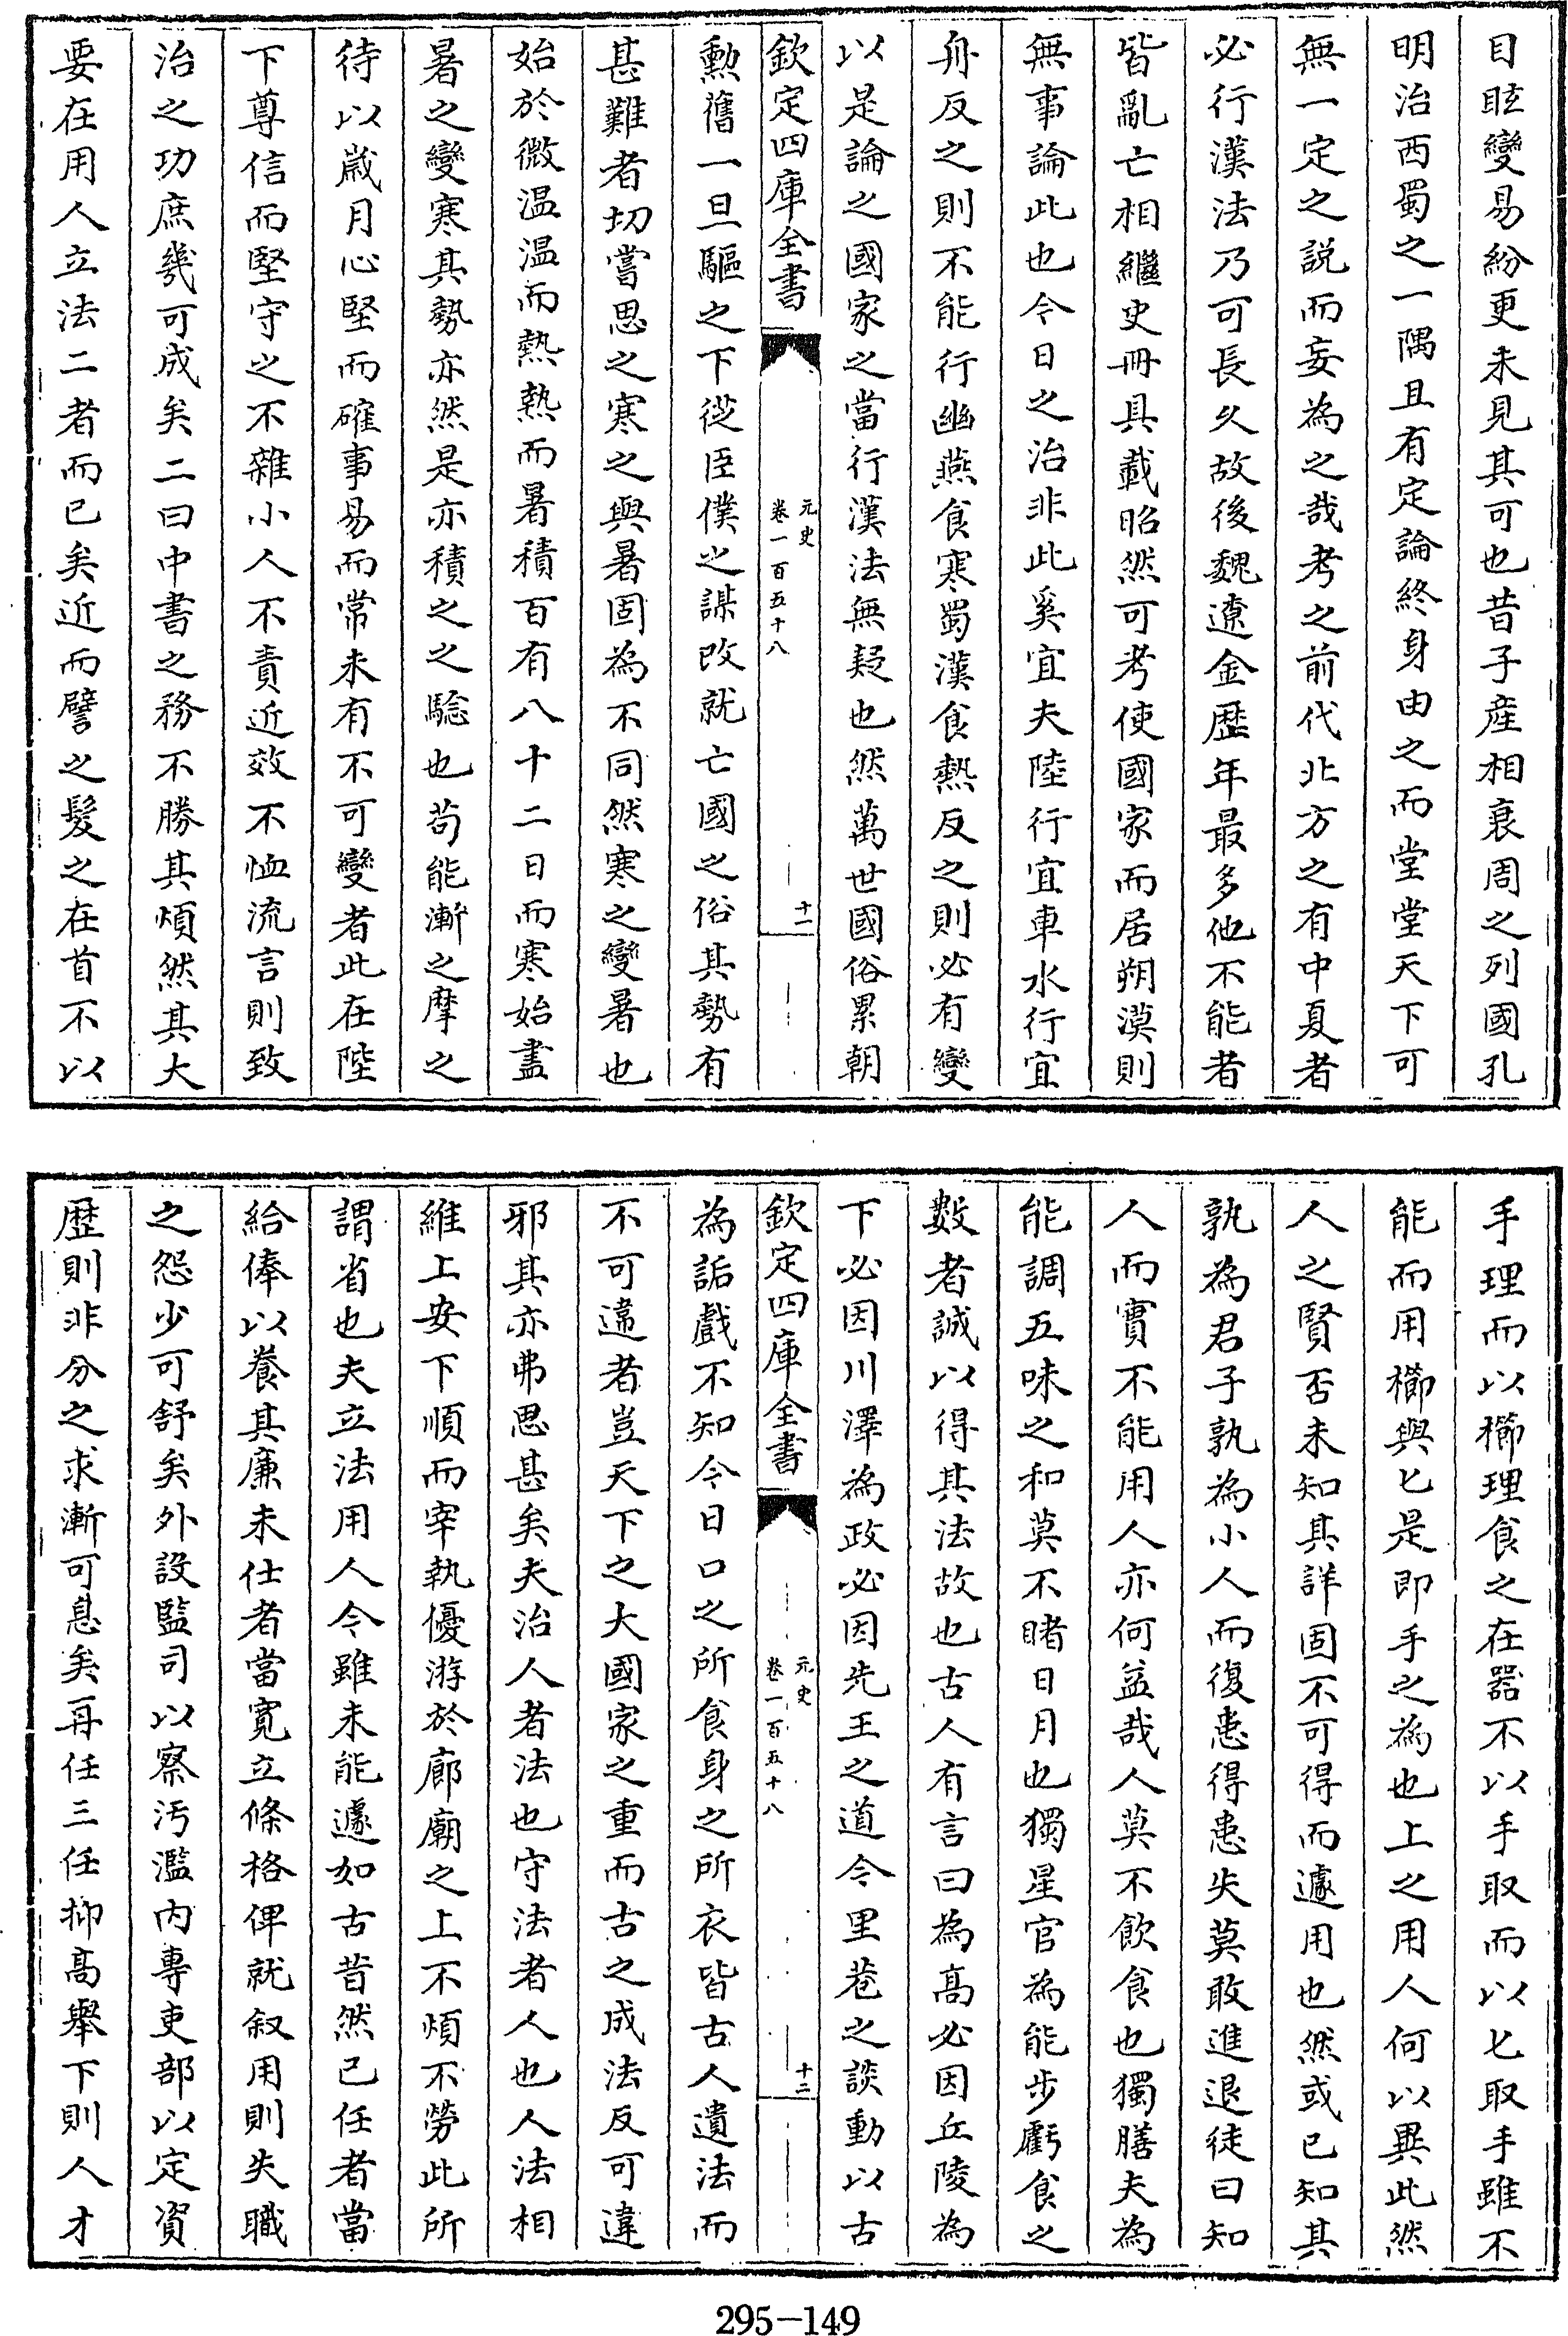 目眩變易紛更未見其可也昔子産相衰周之列國孔
明治西蜀之一隅且有定論終身由之而堂堂天下可
無一定之説而妄為之哉考之前代北方之有中夏者
必行漢法乃可長久故後魏遼金歴年最多他不能者
皆亂亡相繼史冊具載昭然可考使國家而居朔漠則
無事論此也今日之治非此奚宜夫陸行宜車水行宜
舟反之則不能行幽燕食寒蜀漢食熱反之則必有變
以是論之國家之當行漢法無疑也然萬世國俗累朝
欽定四庫全書
元史
卷一百五十八
十一
勲舊一旦驅之下從臣僕之謀改就亡國之俗其勢有
甚難者切嘗思之寒之與暑固為不同然寒之變暑也
始於微温温而熱熱而暑積百有八十二日而寒始盡
暑之變寒其勢亦然是亦積之之騐也茍能漸之摩之
待以歲月心堅而確事易而常未有不可變者此在陛
下尊信而堅守之不雜小人不責近效不恤流言則致
治之功庶㡬可成矣二曰中書之務不勝其煩然其大
要在用人立法二者而已矣近而譬之髮之在首不以
手理而以櫛理食之在器不以手取而以匕取手雖不
能而用櫛與匕是即手之為也上之用人何以異此然
人之賢否未知其詳固不可得而遽用也然或已知其
孰為君子孰為小人而復患得患失莫敢進退徒曰知
人而實不能用人亦何益哉人莫不飲食也獨膳夫為
能調五味之和莫不睹日月也獨星官為能步虧食之
數者誠以得其法故也古人有言曰為髙必因丘陵為
下必因川澤為政必因先王之道今里巷之談動以古
欽定四庫全書
元史
卷一百五十八
十二
為詬戲不知今日口之所食身之所衣皆古人遺法而
不可違者豈天下之大國家之重而古之成法反可違
邪其亦弗思甚矣夫治人者法也守法者人也人法相
維上安下順而宰執優游於廊廟之上不煩不勞此所
謂省也夫立法用人今雖未能遽如古昔然已任者當
給俸以養其廉未仕者當寛立條格俾就叙用則失職
之怨少可舒矣外設監司以察汚濫内專吏部以定資
歴則非分之求漸可息矣再任三任抑髙舉下則人才
295-149